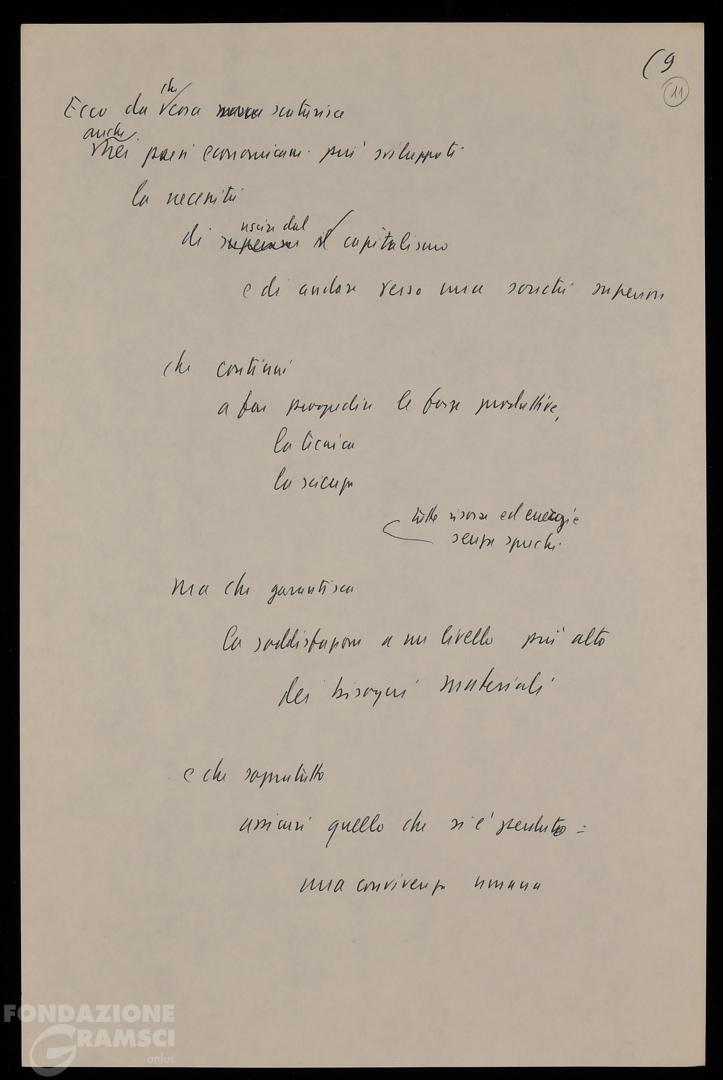 (9
11
Ecco da che cosa scaturisce
anche
nei paesi economicam. più sviluppati
la necessità
uscire dal
di superare il capitalismo
e di andare verso una società superiore
che continui
a far progredire le forze produttive,
la tecnica
la scienza
tutte risorse ed energie
senza sprechi
ma che garantisca
la soddisfazione a un livello più alto
dei bisogni materiali
e che sopratutto
assicuri quello che si è perduto =
una convivenza umana
FONDAZIONE
GRAMSCI
onlus